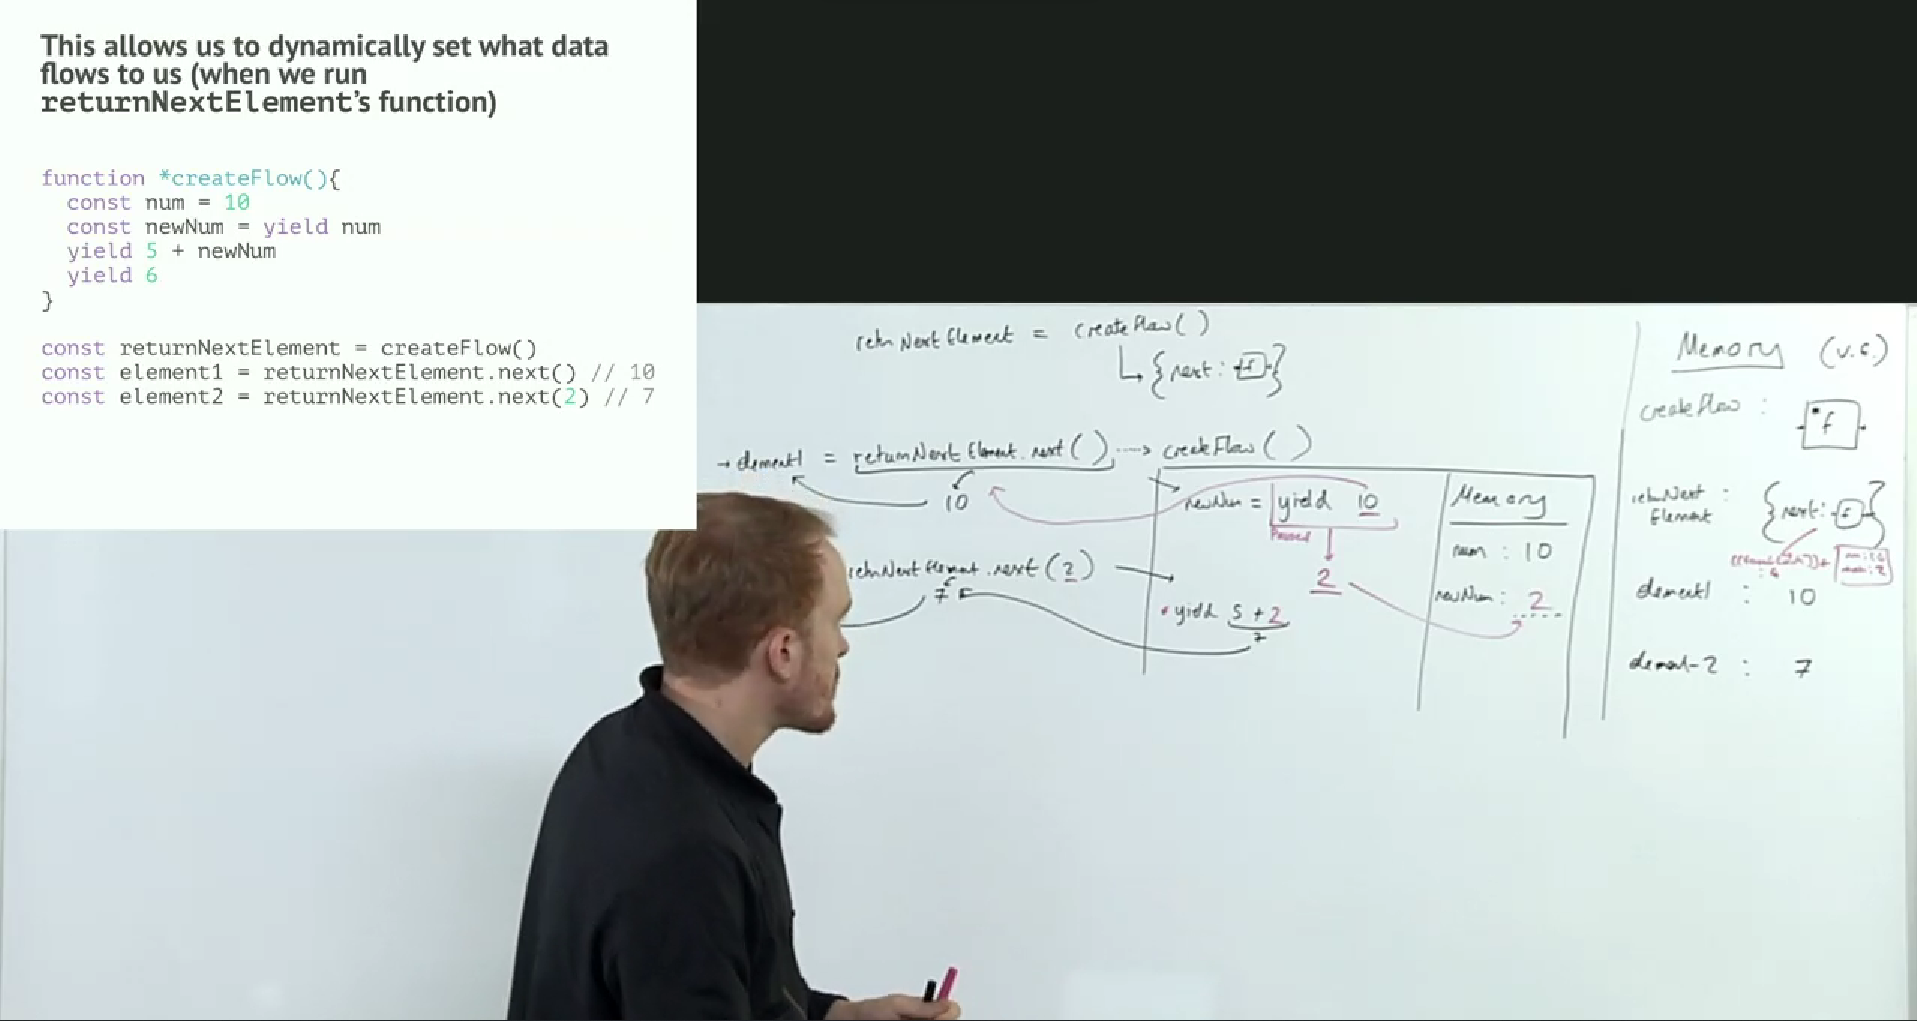 This allows us to dynamically set what data
flows to us (when we run
returnNextElement's function)
function *createFlow(){
const num = 10
const newNum = yield num
yield 5 + newNum
yield 6
}
const returnNextElement = createFlow()
const element1 = returnNextElement.next() // 10
const element2 = returnNextElement.next(2) // 7
retnNextElement = createFlow( )
{next: f}
element1 = returnNextElement.next( ) createFlow( )
10
newNum = yield 10
Paused
2
retnNextElement.next(2)
7
yield 5 + 2
7
Memory
num : 10
newNum : 2
Memory
createFlow : f
retnNext
Element : {next: f}
element1 : 10
element-2 : 7